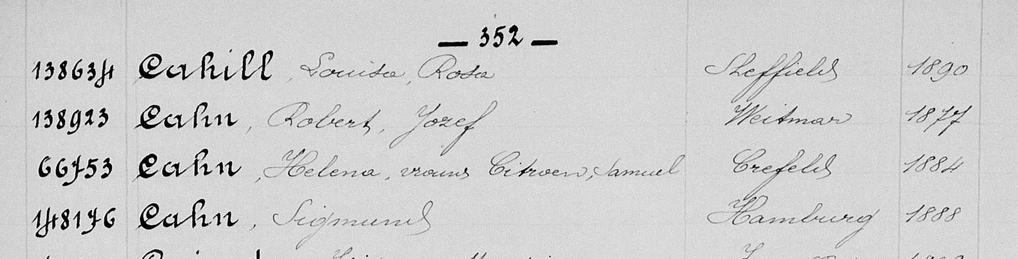 — 352 —
138634 Cahill, Louisa, Rosa Sheffield 1890
138923 Cahn, Robert, Jozef Weitmar 1877
66753 Cahn, Helena, vrouw Citroen, Samuel Crefeld 1884
148176 Cahn, Sigmund Hamburg 1888